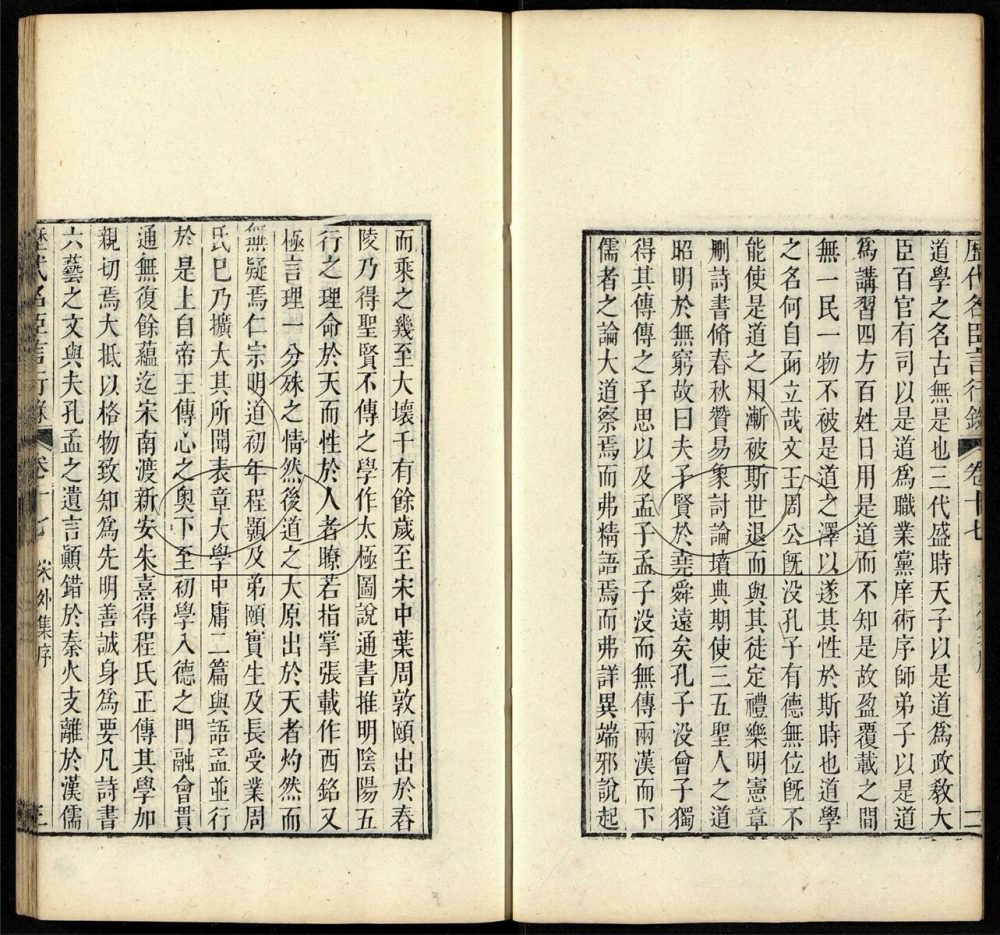 歷代名臣言行錄 卷十七 二
道學之名古無是也三代盛時天子以是道爲政敎大
臣百官有司以是道爲職業黨庠術序師弟子以是道
爲講習四方百姓日用是道而不知是故盈覆載之間
無一民一物不被是道之澤以遂其性於斯時也道學
之名何自而立哉文王周公旣没孔子有德無位旣不
能使是道之用漸被斯世退而與其徒定禮樂明憲章
刪詩書脩春秋贊易象討論墳典期使三五聖人之道
昭明於無窮故曰夫子賢於堯舜遠矣孔子没曾子獨
得其傳傳之子思以及孟子孟子没而無傳兩漢而下
儒者之論大道察焉而弗精語焉而弗詳異端邪說起
而乘之幾至大壞千有餘歲至宋中葉周敦頤出於舂
陵乃得聖賢不傳之學作太極圖說通書推明陰陽五
行之理命於天而性於人者瞭若指掌張載作西銘又
極言理一分殊之情然後道之大原出於天者灼然而
無疑焉仁宗明道初年程顥及弟頤實生及長受業周
氏已乃擴大其所聞表章大學中庸二篇與語孟並行
於是上自帝王傳心之奧下至初學入德之門融會貫
通無復餘蘊迄宋南渡新安朱熹得程氏正傳其學加
親切焉大抵以格物致知爲先明善誠身爲要凡詩書
六藝之文與夫孔孟之遺言顚錯於秦火支離於漢儒
歷代名臣言行錄 卷十七 宋外集序 三